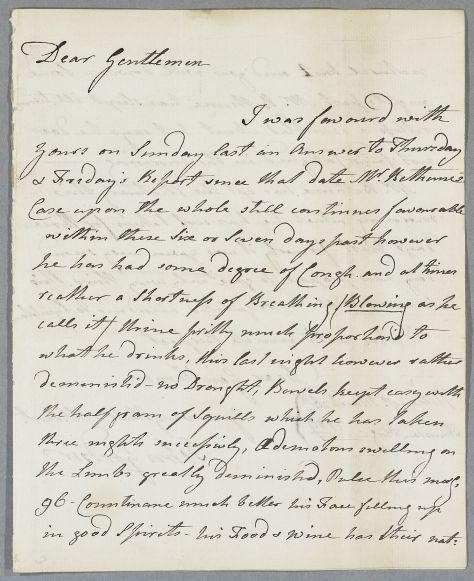 Dear Gentlemen
I was favourd with
yours on Sunday last in Answer to Thursday
& Friday's Report since that date Mr. Bethune's
Case upon the whole still continues favourable
within these Six or Seven days past however
he has had some degree of Cough and at times
reather a Shortness of Breathing (Blowing as he
calls it) Urine pritty much proportion'd to
what he drinks, this last night however rather
deminish'd - no Drought, Bowels keept easy with
the half gram of Squills which he has taken
three nights successively, Œdematous swelling on
the Limbs greatly deminished, Pulse this morg.
96 - Countinanc much better his Face filling up
in good Spirits - his Food & wine has their nat: